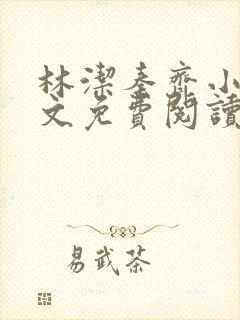 林潔秦齊小
文免費閱讀
易武茶